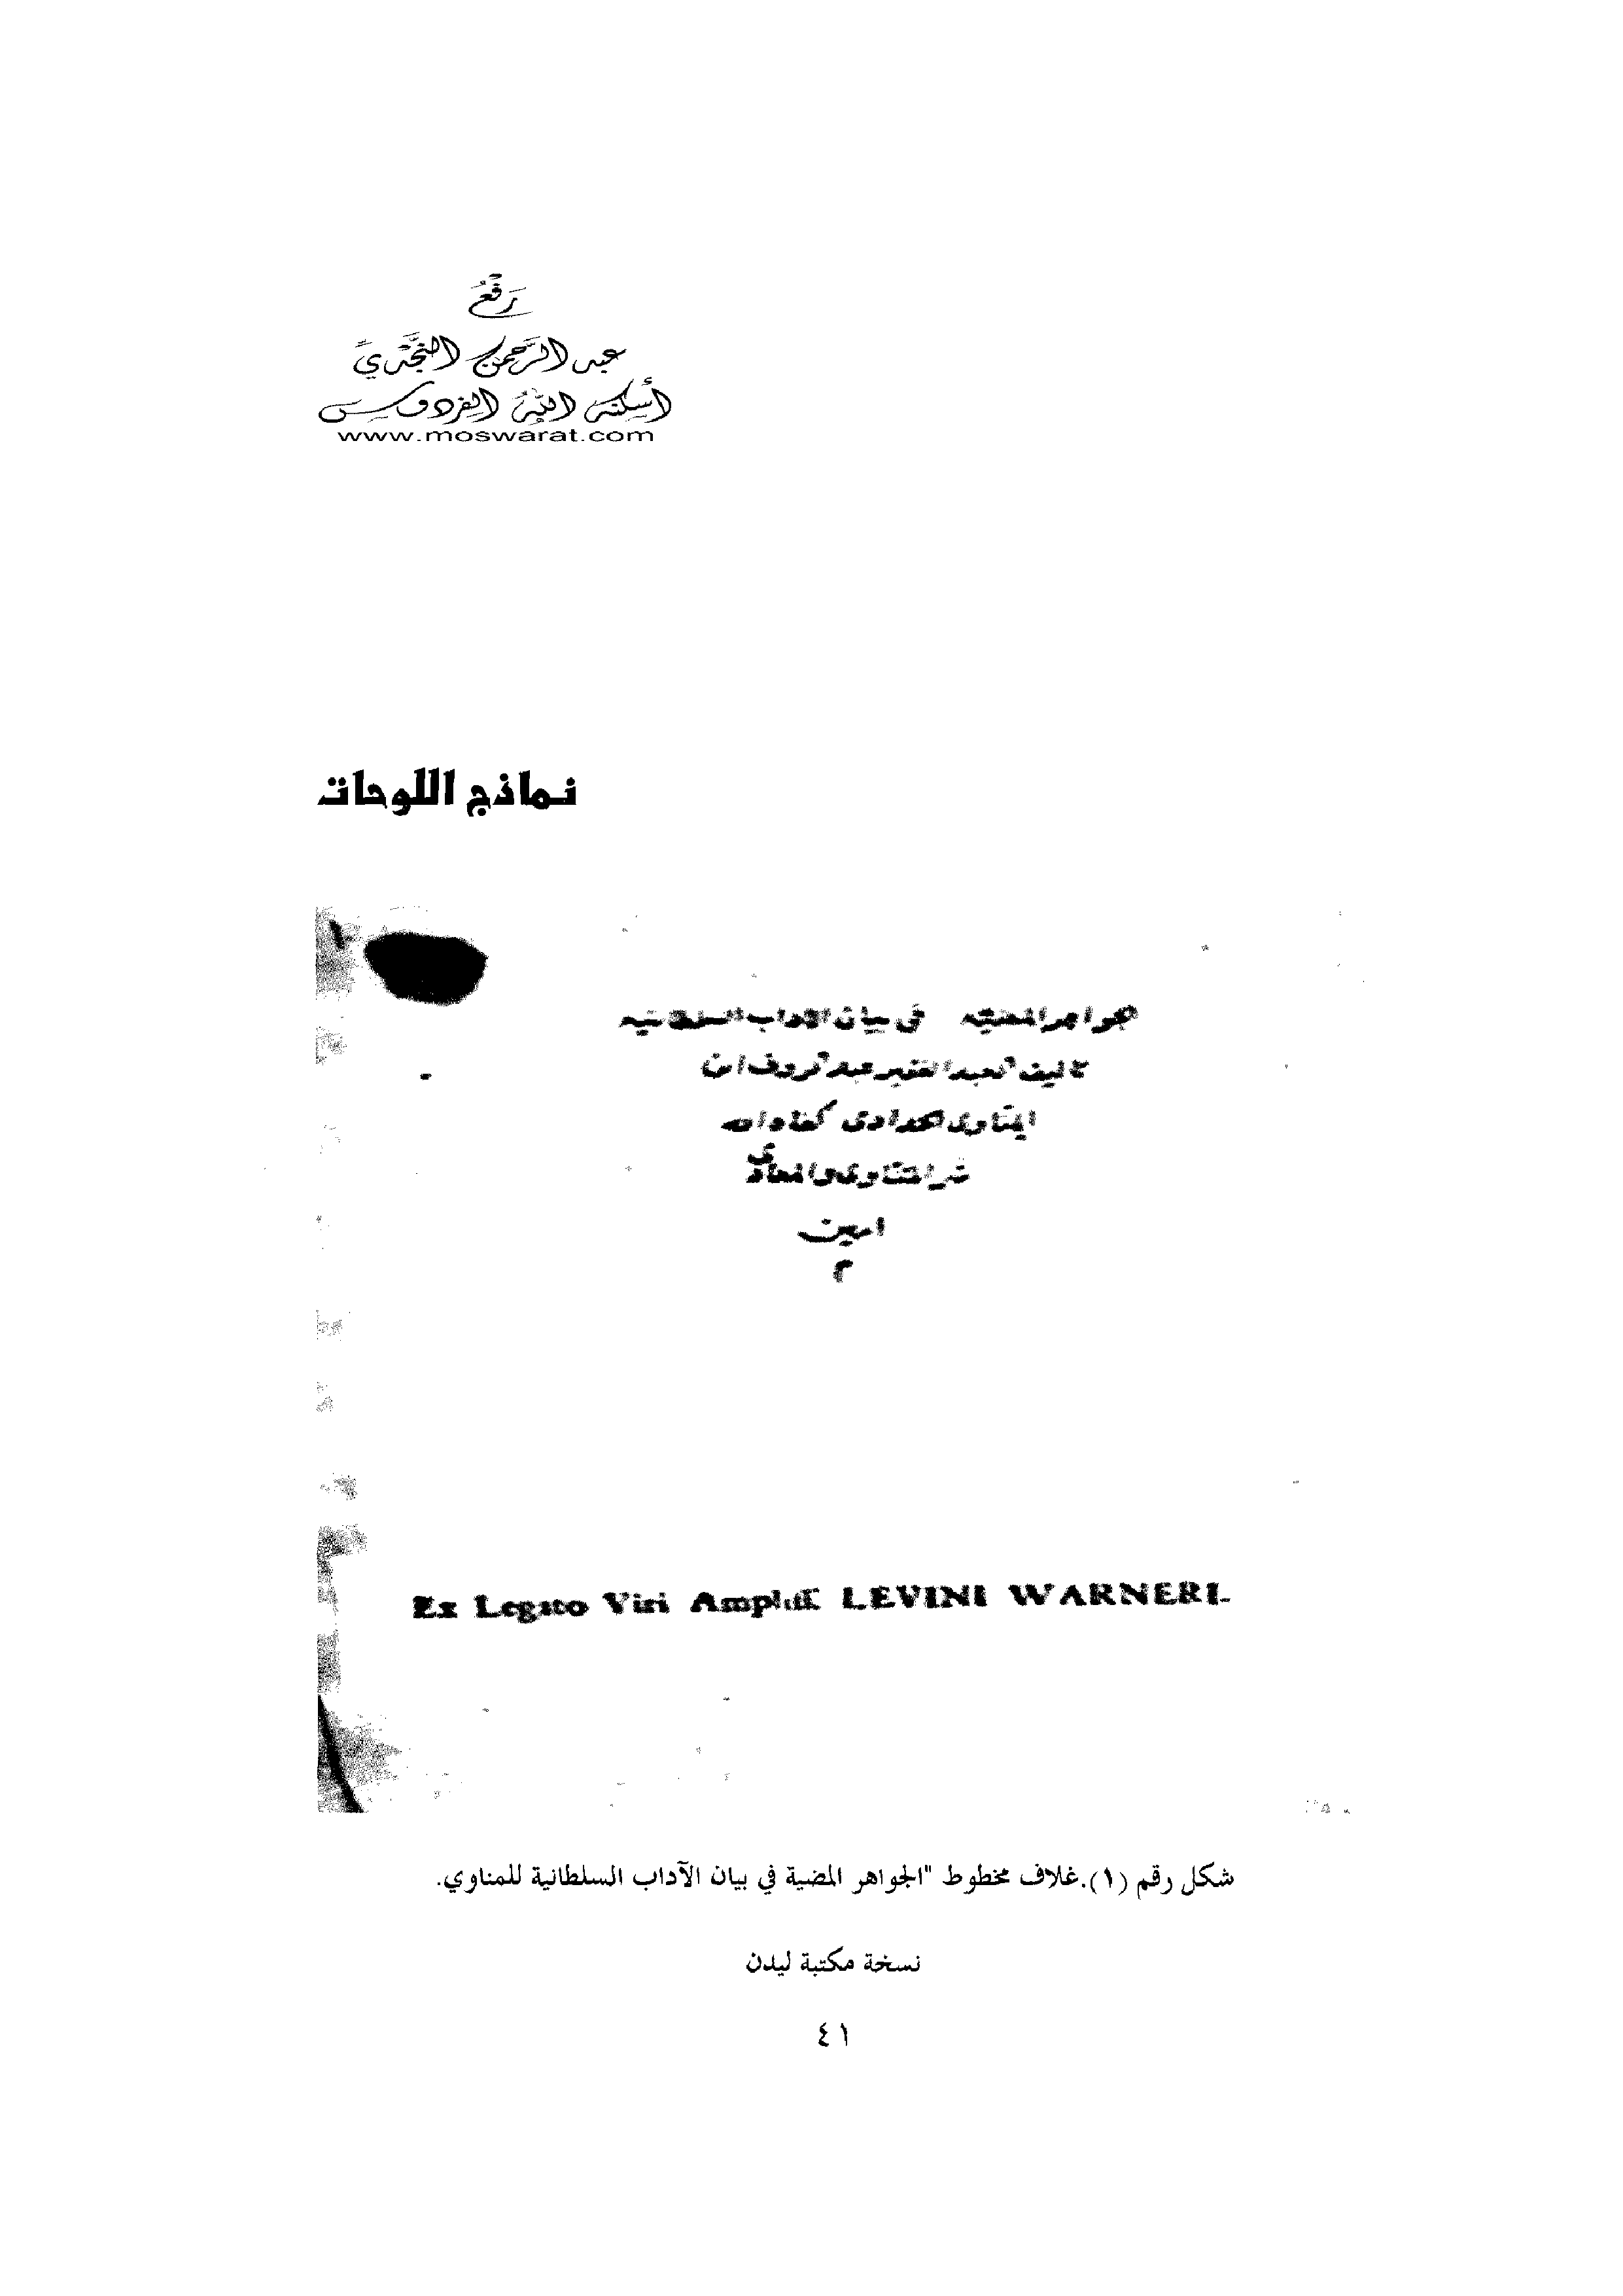 رَفْعُ
عبد الرَّحمن النَّجْديِّ
أسكنه اللهُ الفردوس
www.moswarat.com
نماذج اللوحات
الجواهر المضيه في بيان الاداب السلطانيه
تاليف العبد الفقير عبد الروف ابن
المناوى الحدادى كفاه الله
شر المناوى والمعادي
امين
م
Ex Legato Viri Ampliss. LEVINI WARNERI.
شكل رقم (١). غلاف مخطوط "الجواهر المضية في بيان الآداب السلطانية للمناوي.
نسخة مكتبة ليدن
٤١